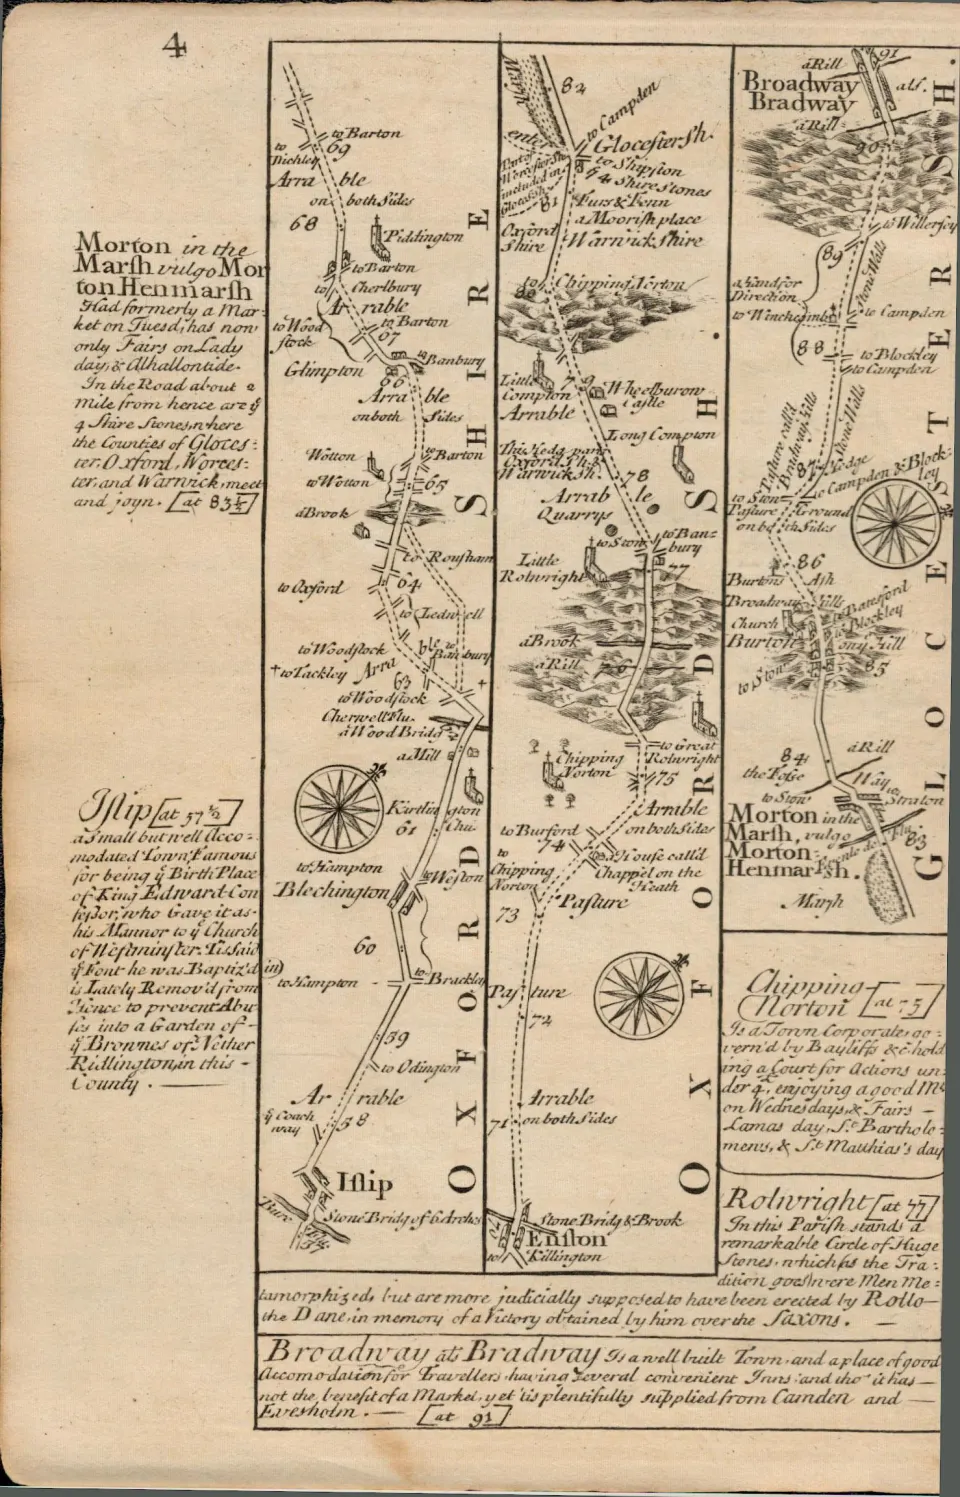 4
Morton in the
Marsh vulgo Mor
ton Henmarsh
Had formerly a Mar-
ket on Tuesd; has now
only Fairs on Lady
day, & Alhallontide.
In the Road about a
mile from hence are ye
4 Shire Stones, where
the Counties of Gloces:
ter, Oxford, Worces-
ter, and Warwick, meet
and joyn. [at 83½]
Islip [at 57½]
a Small but well Acco-
modated Town, Famous
for being ye Birth Place
of King Edward Con
fessor, who Gave it as
his Mannor to ye Church
of Westminster. Tis Said
ye Font he was Baptiz'd in)
is Lately Remov'd from
Hence to prevent Abu
ses into a Garden of
ye Brownes of Nether
Kidlington, in this
County.
to Barton
69
to Bichley
Arrable
on both Sides
68
Piddington
to Barton
to Cherlbury
Arrable
to Wood
stock
to Barton
67
to Banbury
Glimpton
66
Arrable
on both Sides
Wotton
to Barton
to Wotton
65
a Brook
to Rousham
to Oxford
64
to Ledwell
to Woodstock
Arrable
to Banbury
to Tackley
63
to Woodstock
Cherwell Flu.
a Wood Bridg
a Mill
Kirtlington
Chu.
61
to Hampton
Weston
Blechington
60
to Hampton
to Brackley
59
to Odington
Arrable
ye Coach
way
58
Islip
Stone Bridg of 6 Arches
OXFORDSHIRE
82
to Campden
Glocester Sh.
enter
Part of
Worcester Sh
included in
Glocest Sh
to Shipston
4 Shire Stones
81
Furs & Fenn
a Moorish place
Oxford
Shire
Warwick Shire
to Chipping Norton
80
Little
Compton
79
Wheelburow
Castle
Arrable
Long Compton
This Hedg parts
Oxford Sh. &
Warwick Sh.
78
Arrable
Quarrys
to Stow
to Ban-
bury
Little
Rolwright
77
a Brook
a Rill
76
to Great
Rolwright
Chipping
Norton
75
Arrable
on both Sides
to Burford
74
a House call'd
Chappel on the
Heath
to
Chipping
Norton
73
Pasture
Pasture
72
Arrable
on both Sides
71
Stone Bridg & Brook
Enston
70
to Killington
OXFORDSH.
a Rill
91
Broadway
Bradway
als.
a Rill
90
to Willersey
89
a Hand for
Direction
Stone Walls
to Winchcomb
to Campden
88
to Blockley
to Campden
Pasture call'd
Bradway hills
Stone Walls
87
Hedge
to Campden & Block-
ley
to Stow
Pasture Ground
on both Sides
86
Burtons Ash
Broadway hills
Church
Burton
to Batesford
to Blockley
ony Hill
to Stow
85
84
a Rill
the Fosse Way
to Stow
to Straton
Morton in the
Marsh, vulgo
Morton
Henmarsh.
83
Marsh
GLOCESTERSH.
Chipping
Norton [at 75]
Is a Town Corporate, go-
vern'd by Bayliffs &c hold
ing a Court for Actions un-
der 4£, enjoying a good Mt
on Wednesdays, & Fairs
Lamas day, St. Bartholo-
mews, & St. Matthias's day
Rolwright [at 77]
In this Parish stands a
remarkable Circle of Huge
Stones, which (as the Tra-
dition goes) were Men Me:
tamorphized, but are more judicially supposed to have been erected by Rollo
the Dane, in memory of a Victory obtained by him over the Saxons.
Broadway als Bradway Is a well built Town, and a place of good
Accomodation for Travellers, having several convenient Inns: and tho' it has
not the benefit of a Market, yet 'tis plentifully supplied from Camden and
Evesholm. [at 91]